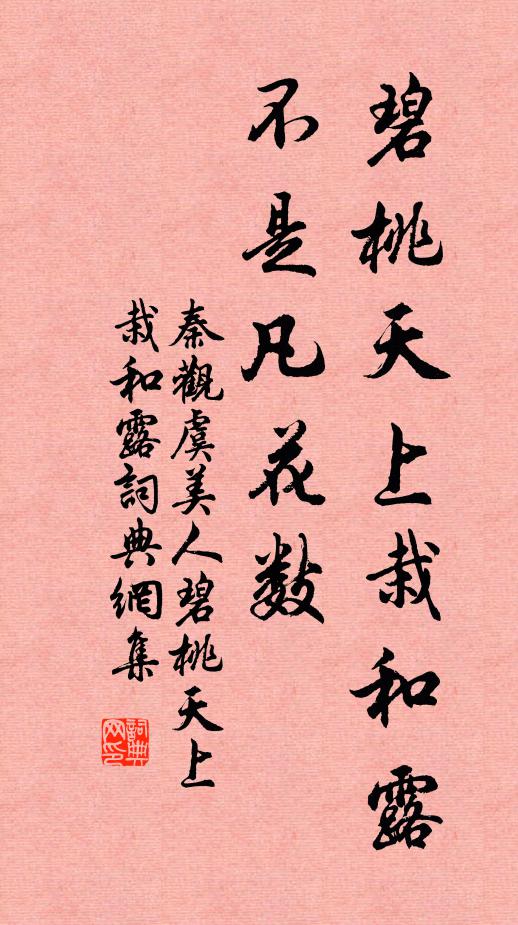 碧桃天上栽和露
不是凡花數
秦觀虞美人碧桃天上
栽和露詞典網集
詞典
网印